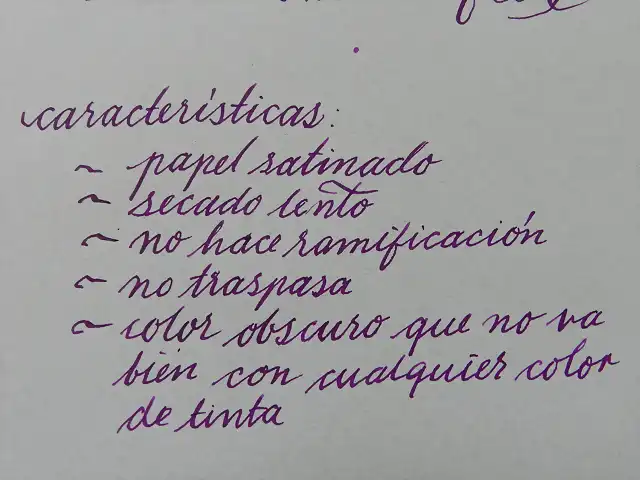 características:
~ papel satinado
~ secado lento
~ no hace ramificación
~ no traspasa
~ color obscuro que no va
bien con cualquier color
de tinta